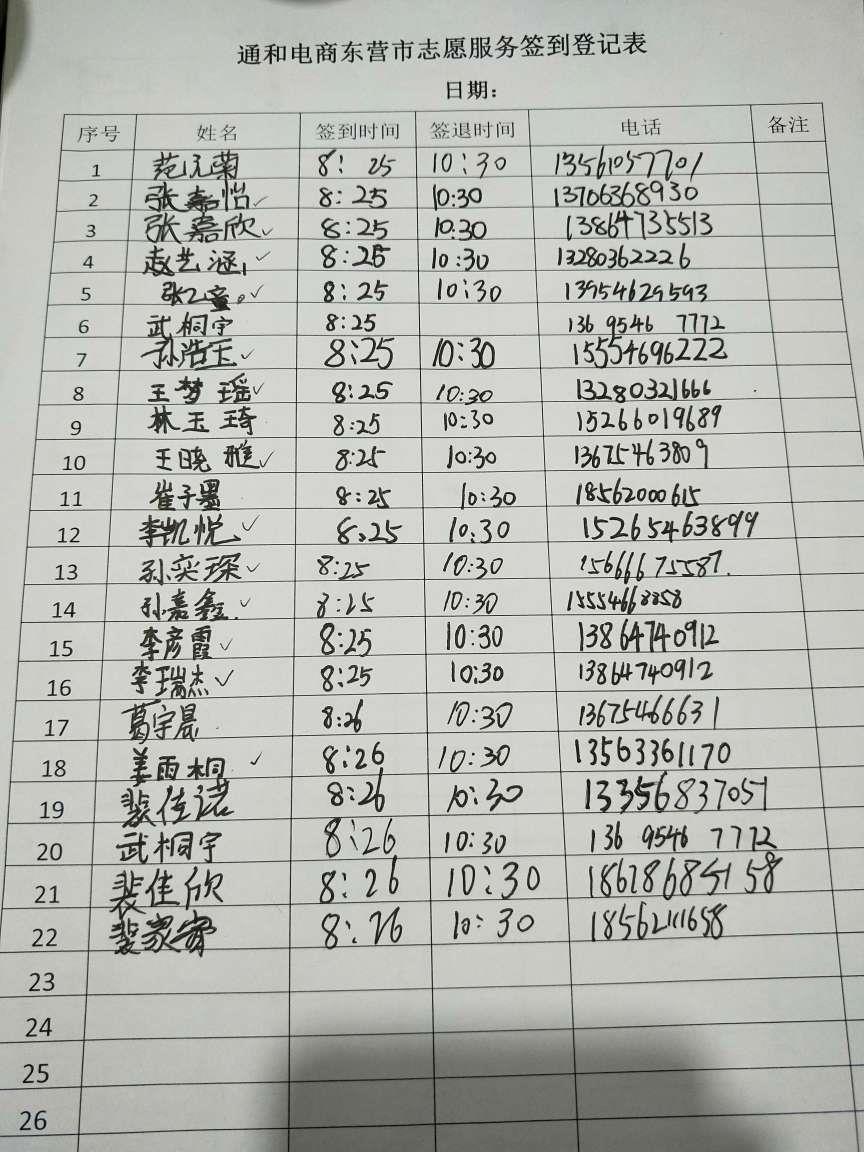 通和电商东营市志愿服务签到登记表
日期：
序号 姓名 签到时间 签退时间 电话 备注
1 范沅菊 8: 25 10:30 13561057701
2 张嘉怡✓ 8:25 10:30 13706368930
3 张嘉欣✓ 8:25 10:30 13864735513
4 赵艺涵✓ 8:25 10:30 13280362226
5 ✓ 8:25 10:30 13954629593
6 武桐宇 8:25 136 9546 7772
7 孙浩玉✓ 8:25 10:30 15554696222
8 王梦瑶✓ 8:25 10:30 13280321666
9 林玉琦 8:25 10:30 15266019689
10 王晓雅✓ 8:25 10:30 13675463809
11 崔子墨 8:25 10:30 18562000615
12 李凯悦✓ 8:25 10:30 15265463899
13 孙奕琛✓ 8:25 10:30 15666675587.
14 孙嘉鑫✓ 8:25 10:30
15 李彦霞✓ 8:25 10:30 13864740912
16 李瑞杰✓ 8:25 10:30 13864740912
17 葛宇晨 8:26 10:30 13675466631
18 姜雨桐✓ 8:26 10:30 13563361170
19 裴佳诺 8:26 10:30 13356837051
20 武桐宇 8:26 10:30 136 9546 7772
21 裴佳欣 8:26 10:30 18678685158
22 裴家 8:26 10:30 18562111658
23
24
25
26